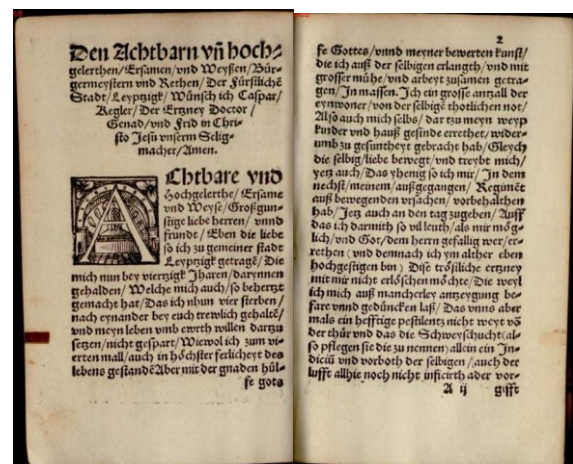 Den Achtbarn vñ hoch⸗
gelerthen/Ersamen/vnd Weyßen/Bür⸗
germeystern vnd Rethen/Der Fürstlichē
Stadt/Leyptzigk/Wünsch ich Caspar/
Kegler/Der Ertzney Doctor/
Genad/vnd Frid in Chri⸗
sto Jesu vnserm Selig⸗
macher/Amen.
AChtbare vnd
Hochgelerthe/Ersame
vnd Weyse/Großgun⸗
stige liebe herren/vnnd
frundt/Eben die liebe
so ich zu gemeiner stadt
Leyptzigk getragē/Die
mich nun bey viertzigk Jharen/darynnen
gehalden/Welche mich auch/so behertzt
gemacht hat/Das ich nhun vier sterben/
nach eynander bey euch trewlich gehaltē/
vnd meyn leben vmb ewrth willen dartzu
setzen/nicht gespart/Wiewol ich zum vi⸗
erten mall/auch in höchster ferlicheyt des
lebens gestandē Aber mit der gnaden hül⸗
fe gots
2
fe Gottes/vnnd meyner bewerten kunst/
die ich auß der selbigen erlangth/vnd mit
grosser mühe/vnd arbeyt zusamen getra⸗
gen/In massen. Ich ein grosse antzall der
eynwoner/von der selbigē thotlichen not/
Also auch mich selbs/dar tzu meyn weyp
kynder vnd hauß gesinde errethet/wider⸗
umb zu gesuntheyt gebracht hab/Gleych
die selbig/liebe bewegt/vnd treybt mich/
yetz auch/Das yhenig so ich mir/In dem
nechst/meinem/außgegangen/Regimēt
auß bewegenden vrsachen/vorbehalthen
hab/Jetz auch an den tag zugeben/Auff
das ich darmith so vil leuth/als mir mög⸗
lich/vnd Got/dem herrn gefallig wer/er⸗
rethen (vnd demnach ich ym alther eben
hochgestigen bin) Dise tröstliche ertzney
mit mir nicht erlöschen möchte/Die weyl
ich mich auß mancherley antzeygung be⸗
fare vnnd gedüncken laß/Das vnns aber
mals ein hefftige pestilentz nicht weyt vō
der thür vnd das die Schweyschucht (al⸗
so pflegen sie die zu nennen) allein ein In⸗
diciū vnd vorboth der selbigen/auch der
lufft allhie noch nicht inficirth ader vor⸗
A ij gifft